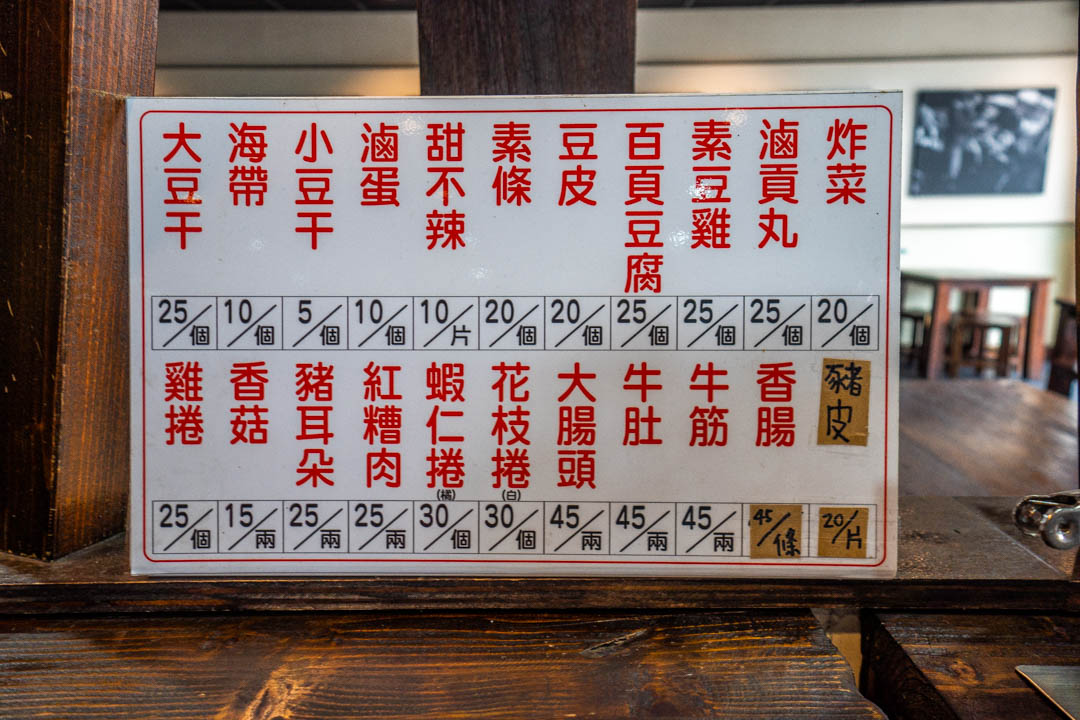 大豆干
海帶
小豆干
滷蛋
甜不辣
素條
豆皮
百頁豆腐
素豆雞
滷貢丸
炸菜
25/個
10/個
5/個
10/個
10/片
20/個
20/個
25/個
25/個
25/個
20/個
雞捲
香菇
豬耳朵
紅糟肉
蝦仁捲
(橘)
花枝捲
(白)
大腸頭
牛肚
牛筋
香腸
豬皮
25/個
15/兩
25/兩
25/兩
30/個
30/個
45/兩
45/兩
45/兩
45/條
20/片